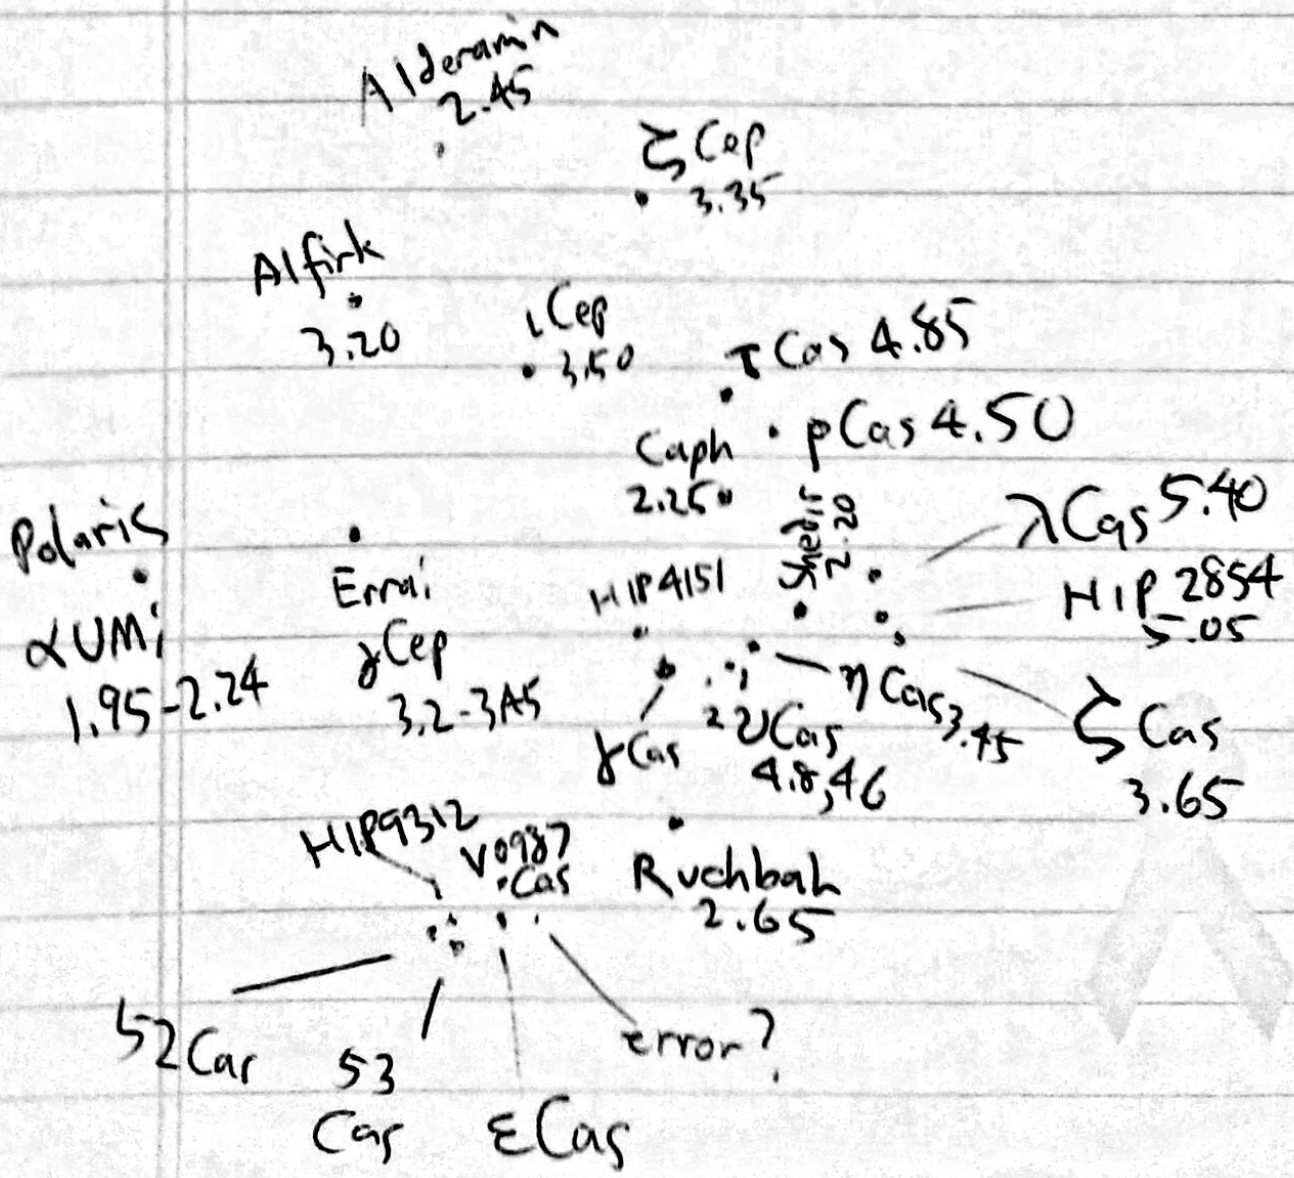 Alderamin
2.45
ζ Cep
3.35
Alfirk
3.20
ι Cep
3.50
τ Cas 4.85
ρ Cas 4.50
Caph
2.25
Shedir
2.20
λ Cas 5.40
HIP 2854
5.05
Polaris
α UMi
1.95-2.24
Errai
γ Cep
3.2-3.45
HIP 4151
γ Cas
η Cas 3.45
2 υ Cas
4.8, 4.6
ζ Cas
3.65
HIP 9312
V0987
Cas
Ruchbah
2.65
52 Cas
53
Cas
ε Cas
error?